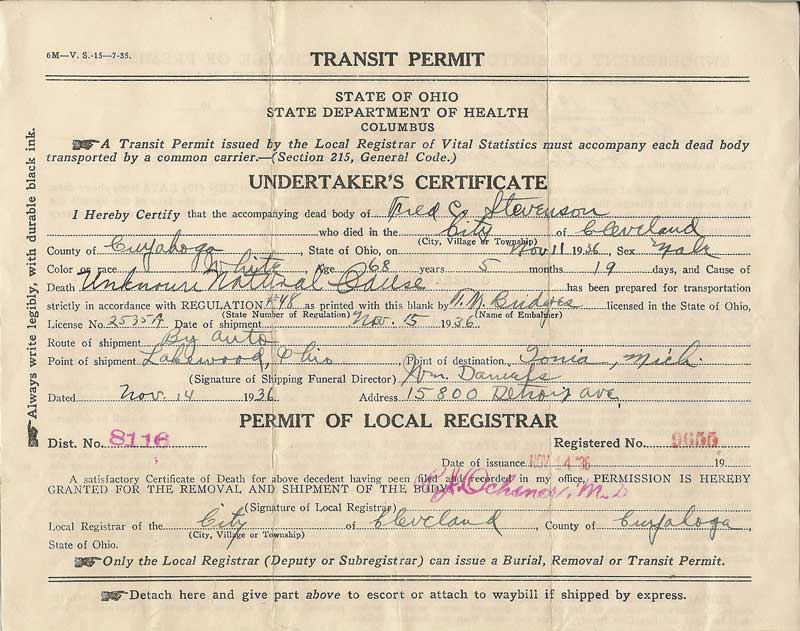 6M—V. S.-15—7-35.
TRANSIT PERMIT
STATE OF OHIO
STATE DEPARTMENT OF HEALTH
COLUMBUS
A Transit Permit issued by the Local Registrar of Vital Statistics must accompany each dead body
transported by a common carrier.—(Section 215, General Code.)
UNDERTAKER'S CERTIFICATE
I Hereby Certify that the accompanying dead body of Fred C. Stevenson
who died in the City of Cleveland
(City, Village or Township)
County of Cuyahoga, State of Ohio, on Nov 11 1936, Sex Male
Color or race White Age 68 years 5 months 19 days, and Cause of
Death Unknown Natural Cause has been prepared for transportation
strictly in accordance with REGULATION #48 as printed with this blank by Bridges licensed in the State of Ohio,
(State Number of Regulation) (Name of Embalmer)
License No. 2535A Date of shipment Nov. 15 1936
Route of shipment By auto
Point of shipment Lakewood, Ohio Point of destination Ionia, Mich.
(Signature of Shipping Funeral Director) Wm. Daniels
Dated Nov. 14 1936 Address 15800 Detroit ave,
PERMIT OF LOCAL REGISTRAR
Dist. No. 8116 Registered No. 9655
Date of issuance NOV 14 '36 19
A satisfactory Certificate of Death for above decedent having been filed and recorded in my office, PERMISSION IS HEREBY
GRANTED FOR THE REMOVAL AND SHIPMENT OF THE BODY. M.D
(Signature of Local Registrar)
Local Registrar of the City of Cleveland, County of Cuyahoga,
(City, Village or Township)
State of Ohio.
Only the Local Registrar (Deputy or Subregistrar) can issue a Burial, Removal or Transit Permit.
Detach here and give part above to escort or attach to waybill if shipped by express.
Always write legibly, with durable black ink.